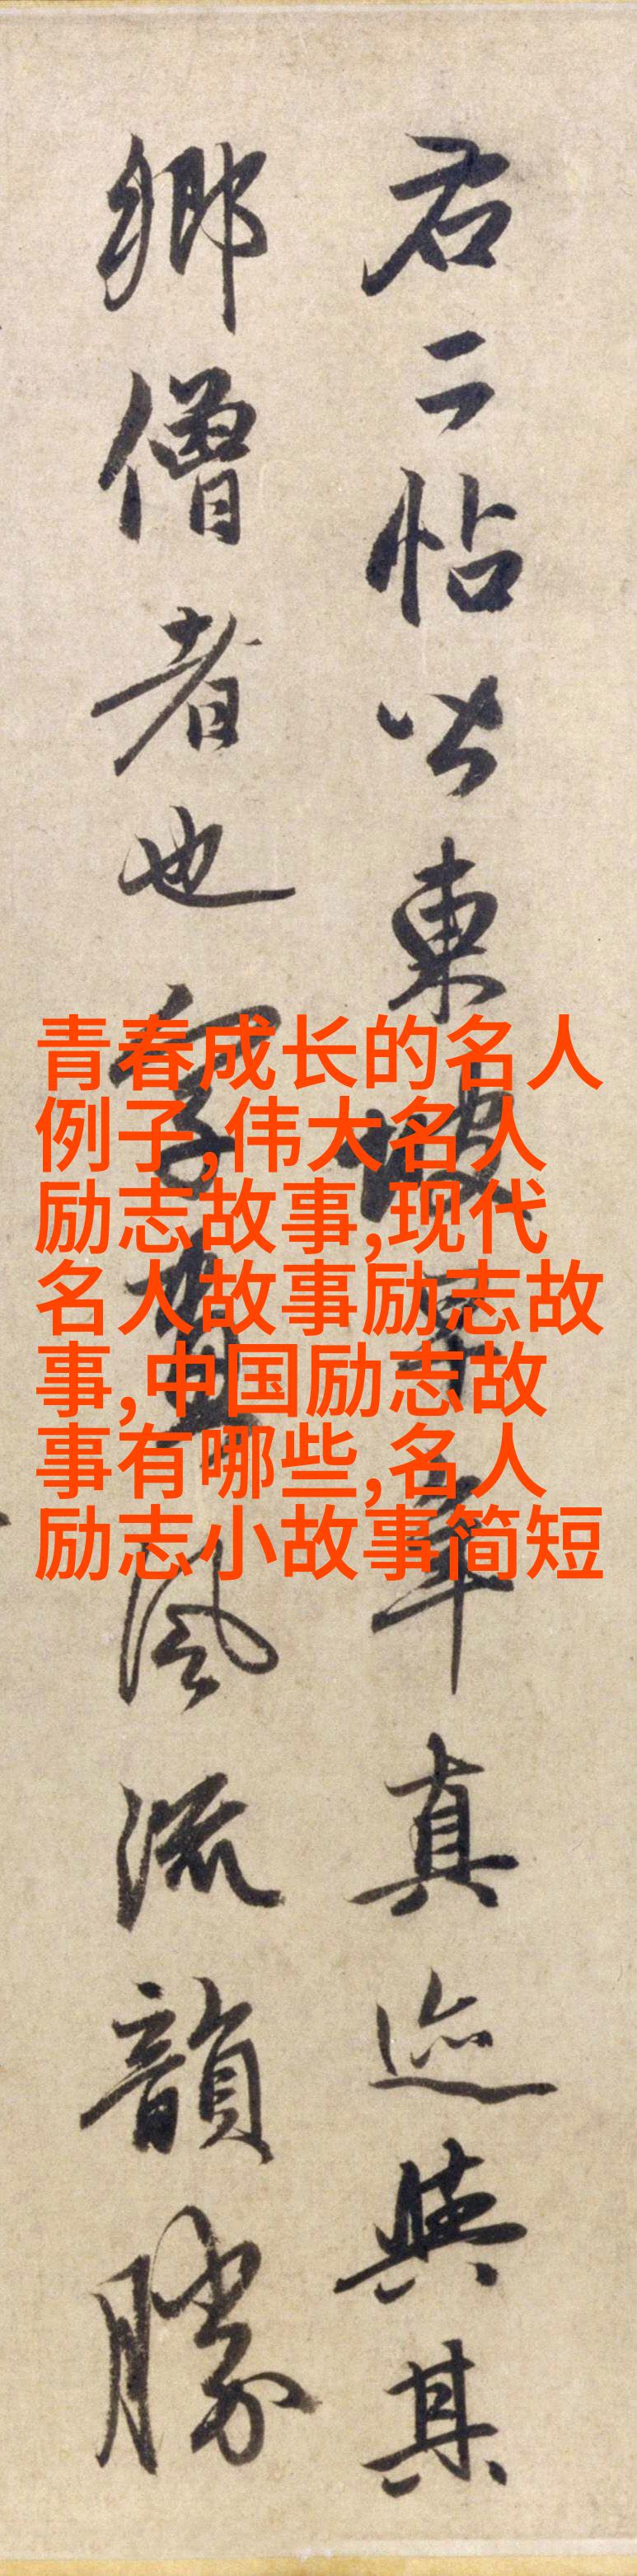 右二帖皆東坡早年真迹與其
鄉僧者也字畫風流韻勝
青春成长的名人
例子,伟大名人
励志故事,现代
名人故事励志故
事,中国励志故
事有哪些,名人
励志小故事简短